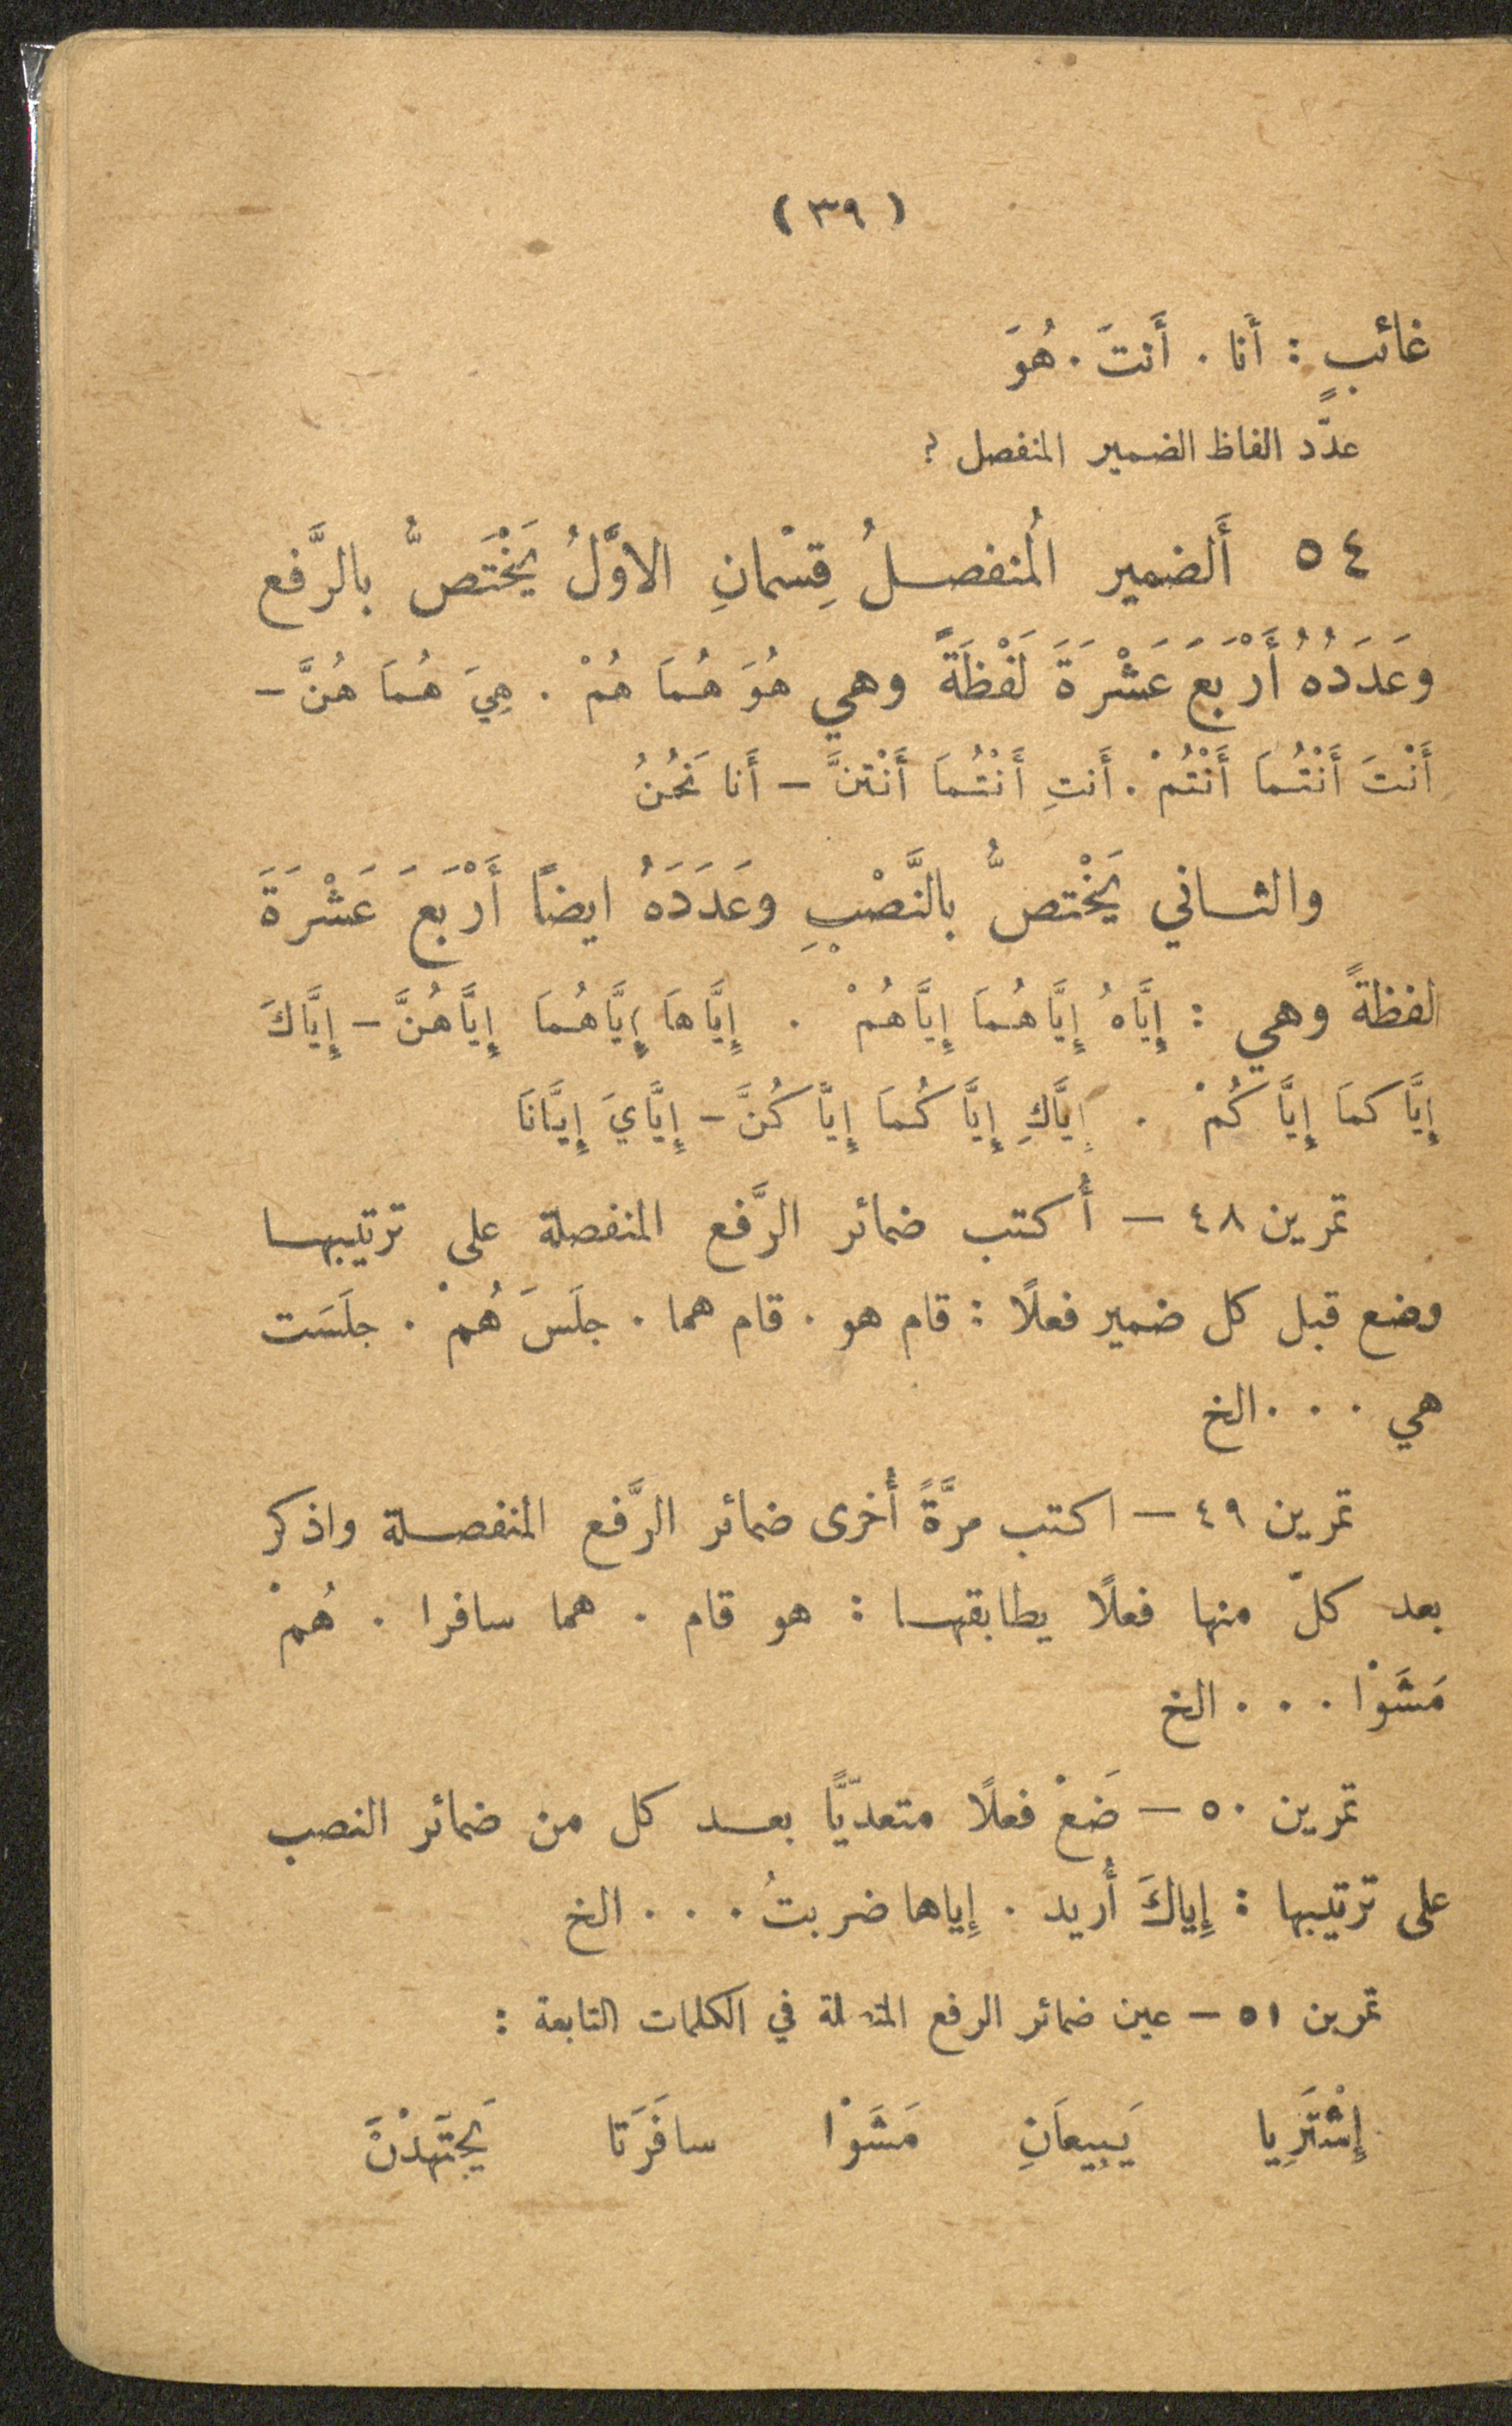 ( ٣٩ )
غائبٍ : أَنا . أَنتَ . هُوَ
عدّد الفاظ الضمير المنفصل ؟
٥٤ أَلضمير المُنفصلُ قِسْمانِ الاوَّلُ يَخْتَصُّ بالرَّفع
وعَدَدُهُ أَرْبَعَ عَشْرَةَ لَفْظَةً وهي هُوَ هُمَا هُمْ . هِيَ هُمَا هُنَّ –
أَنْتَ أَنْتُمَا أَنْتُمْ . أَنتِ أَنْتُمَا أَنْتنَّ – أَنا نَحُنُ
والثاني يَخْتصُّ بالنَّصْبِ وعَدَدَهُ ايضًا أَرْبَعَ عَشْرَةَ
لفظةً وهي : إِيَّاهُ إِيَّاهُمَا إِيَّاهُمْ . إِيَّاهَا إِيَّاهُمَا إِيَّاهُنَّ – إِيَّاكَ
إِيَّاكمَا إِيَّاكُمْ . إِيَّاكِ إِيَّاكُمَا إِيَّاكُنَّ – إِيَّايَ إِيَّانَا
تمرين ٤٨ – أُكتب ضمائر الرَّفع المنفصلة على ترتيبها
وضع قبل كل ضمير فعلًا : قام هو . قام هما . جلَسَ هُمْ . جلَسَت
هي . . . الخ
تمرين ٤٩ – اكتب مرَّةً أُخرى ضمائر الرَّفع المنفصلة واذكر
بعد كلّ منها فعلًا يطابقها : هو قام . هما سافرا . هُمْ
مَشَوْا . . . الخ
تمرين ٥٠ – ضَعْ فعلًا متعدّيًّا بعد كل من ضمائر النصب
على ترتيبها : إِياكَ أُريد . إِياها ضربتُ . . . الخ
تمرين ٥١ – عين ضمائر الرفع في الكلمات التابعة :
إِشْتَرِيا يَبِيعَانِ مَشَوْا سافَرَتَا يَجتَهِدْنَ